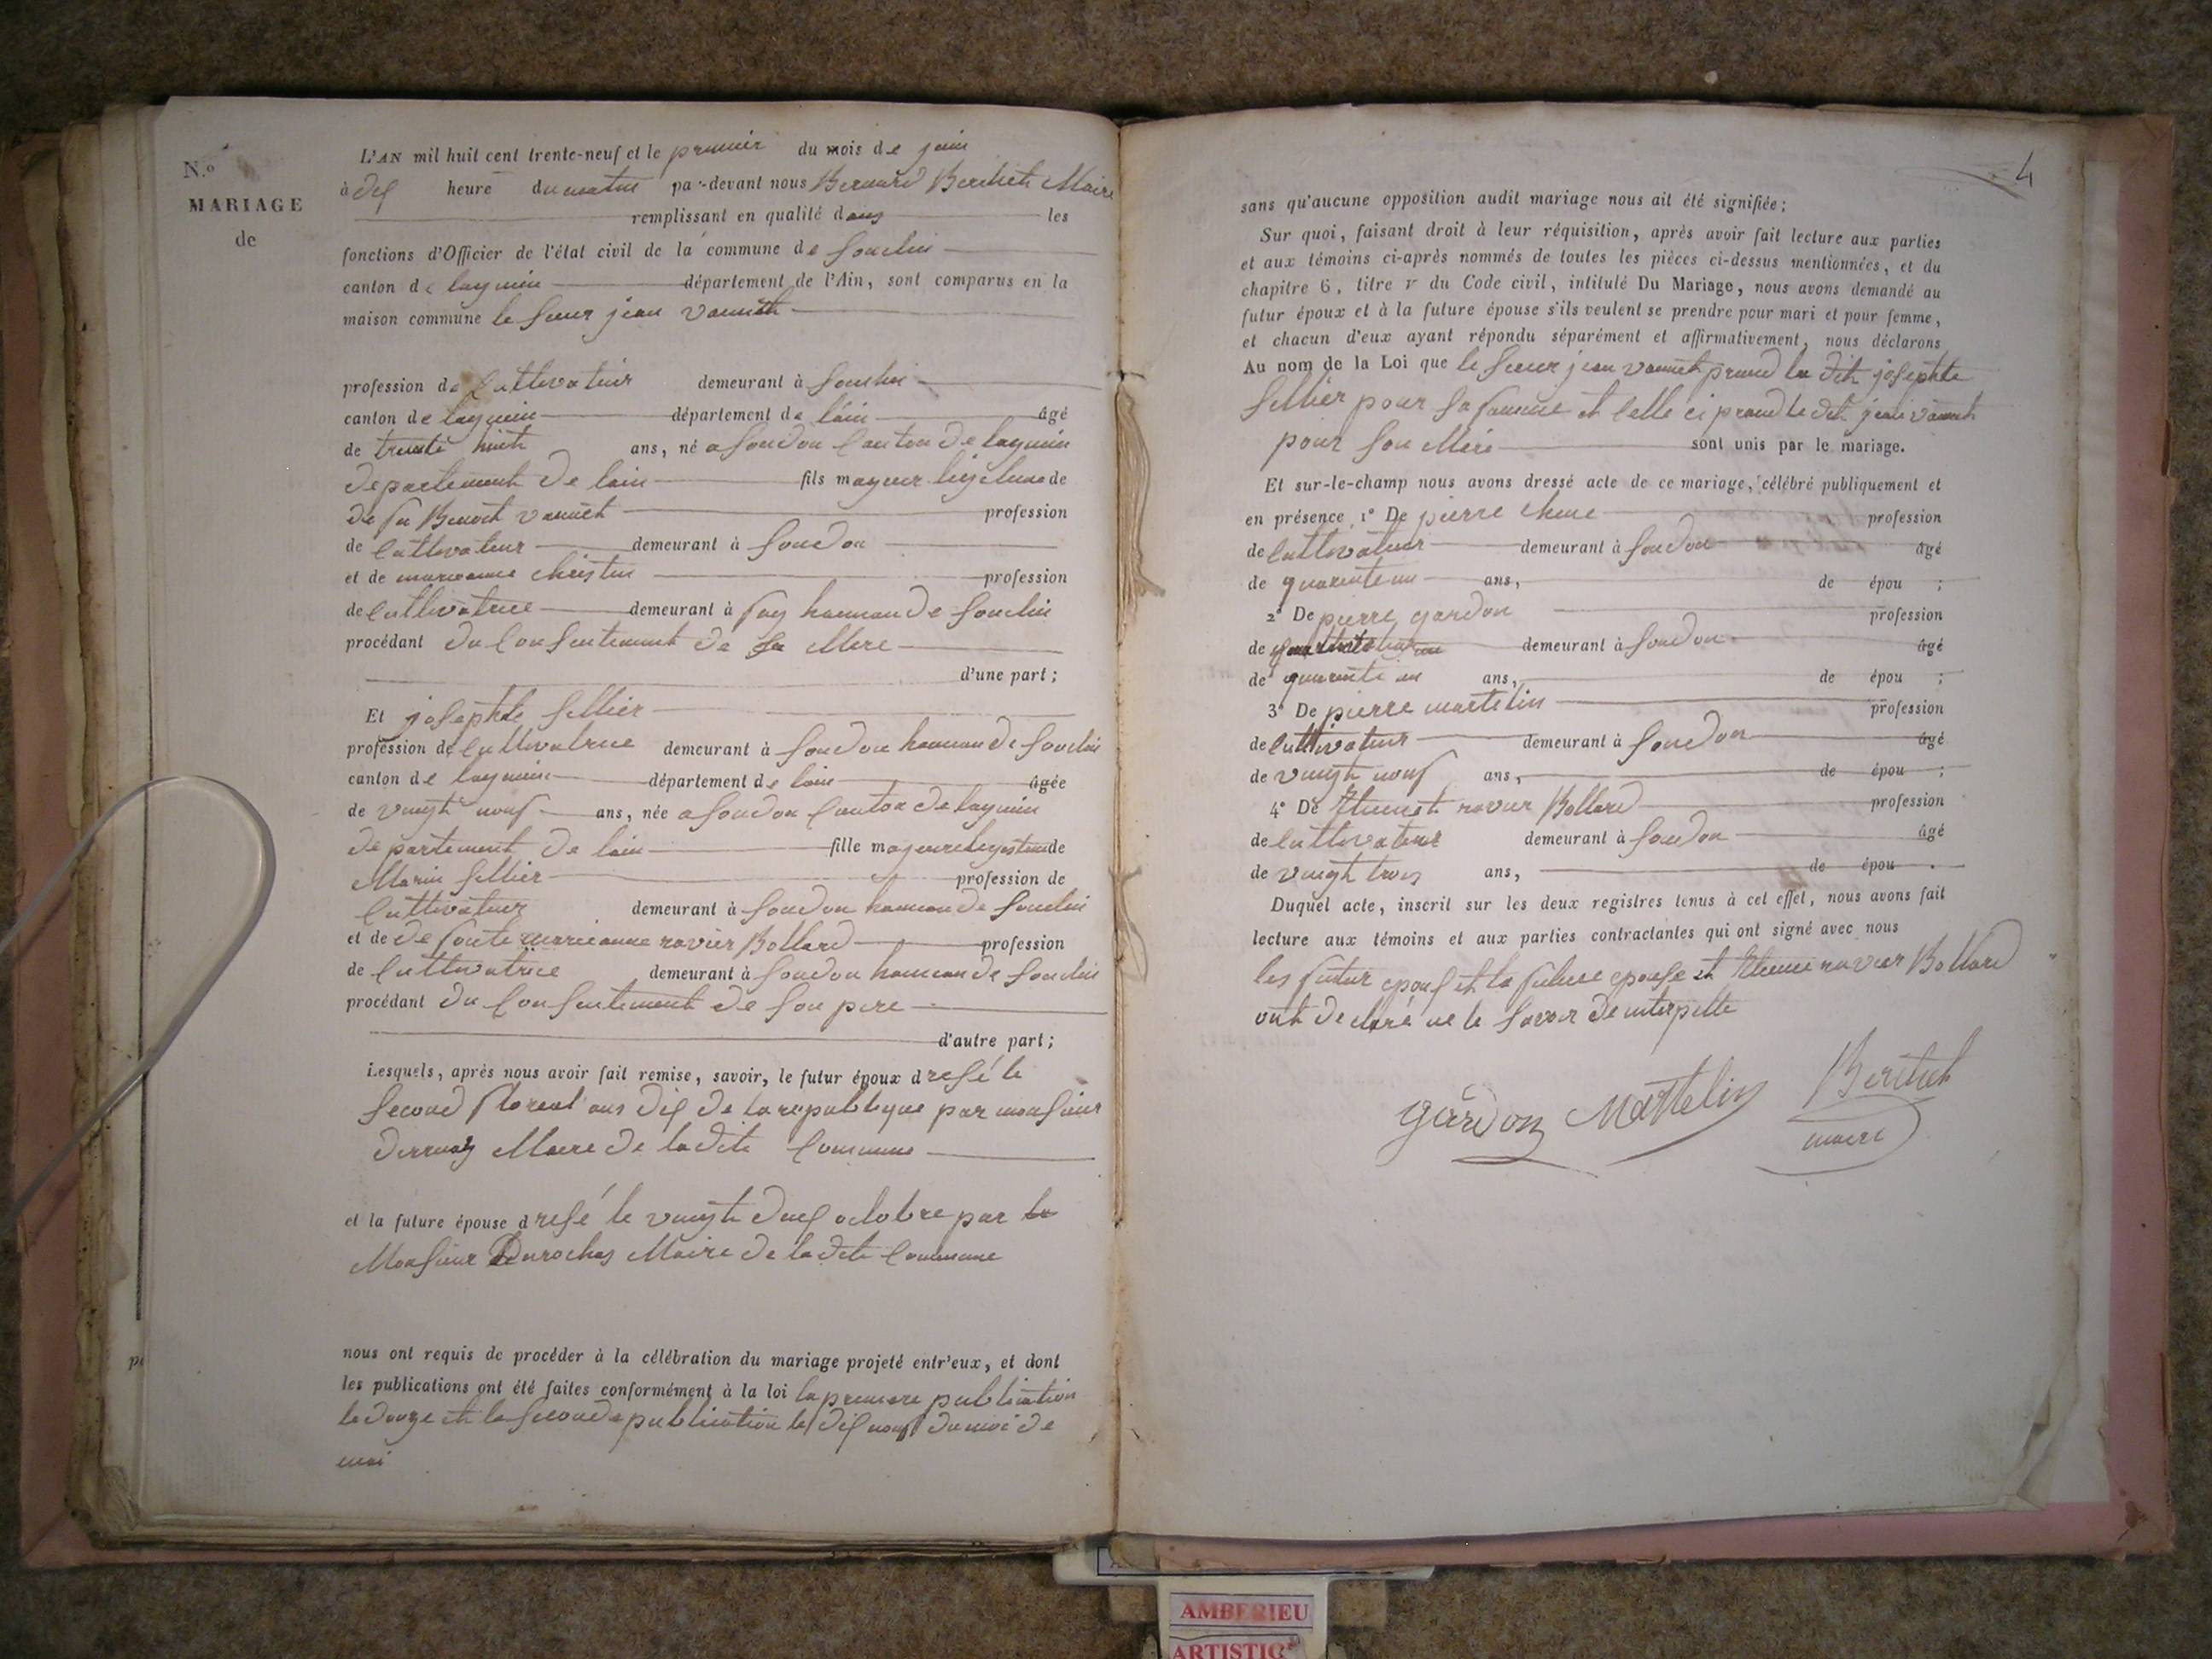 N.º
MARIAGE
de
L'AN mil huit cent trente-neuf et le premier du mois de juin
à dix heure du matin par-devant nous Bernard Berthet Maire
remplissant en qualité dans les
fonctions d'Officier de l'état civil de la commune de Souclin
canton de lagnieu département de l'Ain, sont comparus en la
maison commune le sieur jean vannet
profession de Cultivateur demeurant à Souclin
canton de lagnieu département de lain âgé
de trente huit ans, né a Soudon Canton de lagnieu
departement de lain fils mageur de
de fu Benoit vannet profession
de Cultivateur demeurant à Soudon
et de marieanne christin profession
de Cultivatrice demeurant à fay hameau de Souclin
procédant du Consentement de sa Mere
d'une part ;
Et josephte Sellier
profession de Cultivatrice demeurant à Soudon hameau de Souclin
canton de lagnieu département de lain âgée
de vingt nouf ans, née a Soudon Canton de lagnieu
departement de lain fille mageure de
Marin Sellier profession de
Cultivateur demeurant à Soudon hameau de Souclin
et de de founte marieanne ravier Bollard profession
de Cultivatrice demeurant à Soudon hameau de Souclin
procédant du Consentement de son pere
d'autre part ;
Lesquels, après nous avoir fait remise, savoir, le futur époux dresé le
second floreal ans dix de la republique par monsieur
Maire de ladite Commune
et la future épouse dresé le vingt deux octobre par
Monsieur Durochas Maire de la dite Commune
nous ont requis de procéder à la célébration du mariage projeté entr'eux, et dont
les publications ont été faites conformément à la loi la premiere publication
le douze et la seconde publication le dix nouf du moi de
mai
4
sans qu'aucune opposition audit mariage nous ait été signifiée ;
Sur quoi, faisant droit à leur réquisition, après avoir fait lecture aux parties
et aux témoins ci-après nommés de toutes les pièces ci-dessus mentionnées, et du
chapitre 6, titre v du Code civil, intitulé Du Mariage, nous avons demandé au
futur époux et à la future épouse s'ils veulent se prendre pour mari et pour femme,
et chacun d'eux ayant répondu séparément et affirmativement, nous déclarons
Au nom de la Loi que le sieur jean vannet prend la dit josephte
Sellier pour sa famme et celle ci prand le dit jean vannet
pour son Mari sont unis par le mariage.
Et sur-le-champ nous avons dressé acte de ce mariage, célébré publiquement et
en présence 1º De pierre chene profession
de Cultivateur demeurant à Soudon âgé
de quarente un ans, de épou ;
2º De pierre gardon profession
de demeurant à Soudon âgé
de quarente un ans, de épou ;
3º De pierre martelin profession
de Cultivateur demeurant à Soudon âgé
de vingt nouf ans, de épou ;
4º De Etienet ravier Bollard profession
de Cultivateur demeurant à Soudon âgé
de vingt trois ans, de épou .
Duquel acte, inscrit sur les deux registres tenus à cet effet, nous avons fait
lecture aux témoins et aux parties contractantes qui ont signé avec nous
les futur epoux et la future epouse et Etiene ravier Bollard
ont declaré ne le savoir de interpelle
gardon Martelin Berthet
maire
AMBERIEU
ARTISTIC